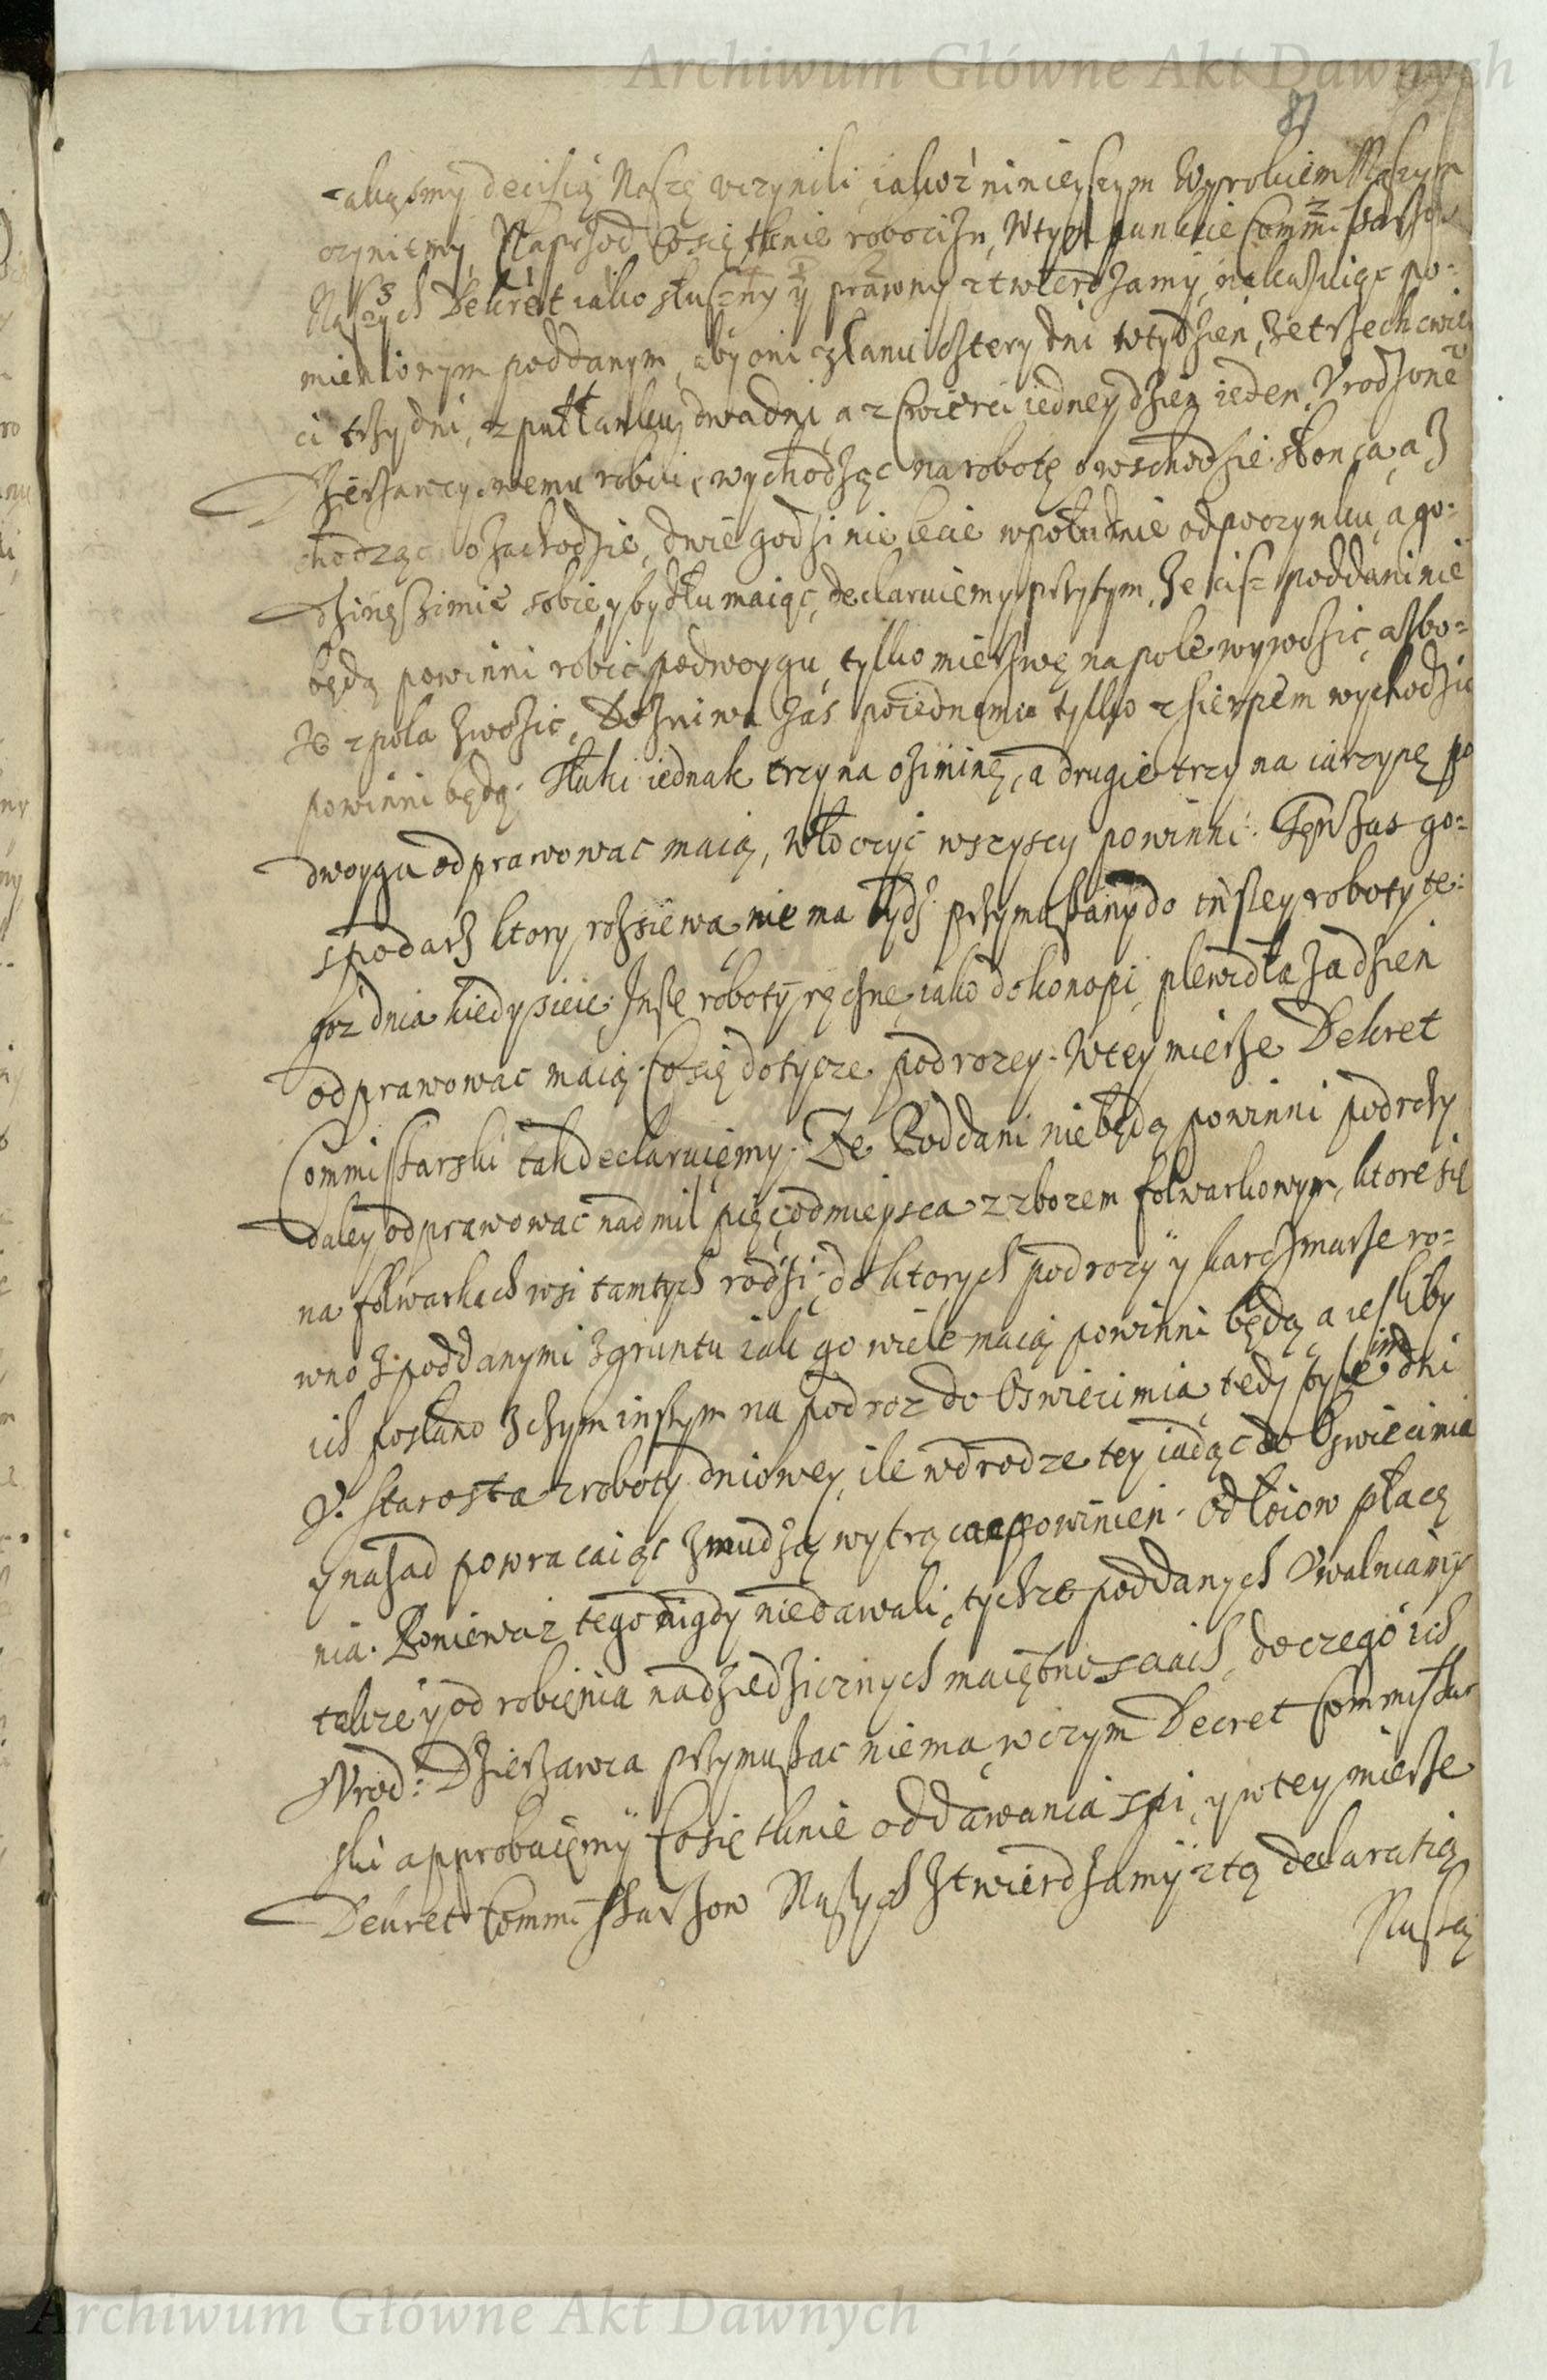 Archiwum Główne Akt Dawnych
81
takąsmy decisią Naszę uczynili, iakoż ninieyszym Wyrokiem Naszym
czyniemy, Naprzod Co się tknie robocizn, Wtym punkcie Commissarzow
Naszych Dekret iako słuszny y prawny ztwierdzamy, nakazuiąc po=
mienionym poddanym, aby oni z łanu cztery dni w tydzien, ze trzech cwier
ci trzy dni, z puł łanku dwa dni, a z Cwierci iedney dzien ieden, Urodzone
Dzierzawcy swemu robili, wychodząc na robotę o wschodzie słonca, a z
chodząc o zachodzie, dwie godzinie lecie w południe odpoczynku, a go=
dzinę zimie sobie y bydłu maiąc, declaruiemy przytym, że cisz poddani nie
będą powinni robic po dwoygu, tylko mierzwę na pole wywozic, a zbo=
że z pola zwozic, Do zniwa zas po iednemu tylko z sierpem wychodzic
powinni będą. Staki iednak trzy na oziminę, a drugie trzy na iarzynę po
dwoygu odprawowac maią, włoczyć wszyscy powinni. Tenże zas go=
spodarz ktory rozsiewa, nie ma bydz przymuszany do inszey roboty te=
goż dnia kiedy sieie. Insze roboty ręczne, iako do konopi, plewidła za dzien
odprawowac maią. Co się dotycze podrozey. W tey mierze Dekret
Commissarski tak declaruiemy. Ze Poddani nie będą powinni podrozy
daley odprawowac nad mil pięc od mieysca z zbozem folwarkowym, ktore się
na folwarkach wsi tamtych rodzi, do ktorych podrozy y karczmarze ro=
wno z poddanymi z gruntu iak go wiele maią powinni będą, a iesliby
ich posłano z czym inszym na podroz do Oswiecimia, tedy tyle im dni
P. Starosta z roboty dniowey, ile w drodze tey iadąc do Oswiecimia
y nazad powracaiąc zmudzą wytrącac powinien. Od łoiow płace
nia. Poniewaz tego nigdy niedawali, tychze poddanych Uwalniamy
takze y od robienia na dziedzicznych maiętnosciach, do czego ich
Urod: Dzierzawca przymuszac niema, w czym Decret Commissar
ski approbuiemy. Co się tknie oddawania spi, y w tey mierze
Dekret Commissarzow Naszych ztwierdzamy z tą declaratią
Naszą
Archiwum Główne Akt Dawnych